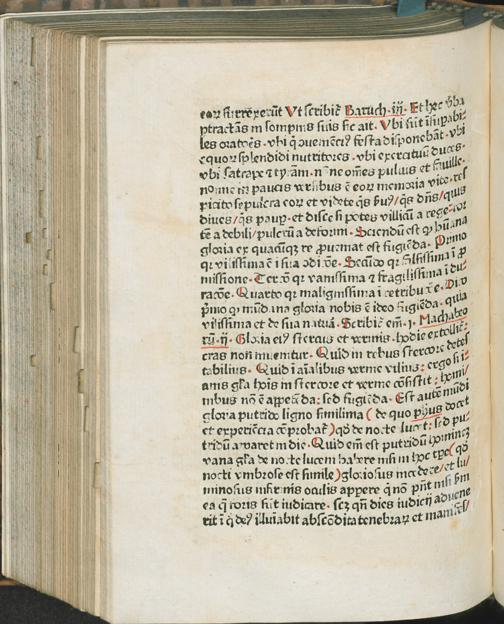 eoꝝ surrexerūt Vt scribit̄ Baruch .iij. Et hec v̄ba
ptractās in sompnis suis sic ait. Vbi sūt īsupabi-
les oratores. vbi q̇ ꝯuenièt̄ festa disponebāt. vbi
equoꝝ splendidi nutritores. vbi exercituū duces.
vbi satrape ⁊ tyrāni. nōne om̄es puluis et fauille.
nōne in paucis versibus ē eoꝝ memoria vite. res
picito sepulcra eoꝝ et videte q̄s quis
diues/q̄s paup. et disce si potes a rege
tē a debili/pulcrū a deformi. Sciendū est humana
gloria ex quacūqꝫ re ꝓueniat est fugiēda. Primo
qꝛ vilissima ē ī sua Secūdo qꝛ falsissima ī ꝓ
missione. Tercō qꝛ vanissima ⁊ fragilissima ī du-
racōe. Quarto qꝛ malignissima ī retributōe. Dico
p̄mo mūdana gloria nobis ē ideo fugiēda. quia
vilissima et de sua natura. Scribit̄ em̄ .j. Machabeo
rū .ij. Gloria eiꝰ stercus et vermis. hodie extollit̄
cras non inuenitur. Quid in rebus stercore detes
tabilius. Quid ī aīalibus verme vilius: ergo
gl̄a hoīs in stercore et verme cōsistit:
nibus nō ē appetēda: sed fugiēda. Est autē mūdi
gloria putrido ligno simillima (de quo ph̄us docet
et experiēcia cōprobat) qd̄ de nocte lucet: sed pu-
tridū apparet in die. Quid em̄ est putridū
vana gl̄a de nocte lucem habere nisi in hoc tꝑe (qd̄
nocti vmbrose est simile) gloriosus et lu/
minosus infirmis oculis appere q̇ nō pn̄t nisi
ea q̄ foris sūt iudicare. scꝫ qn̄ dies iudicij adueñe
rit ī q̇ deꝰ illuīabit abscōdita tenebraꝝ et manifes/